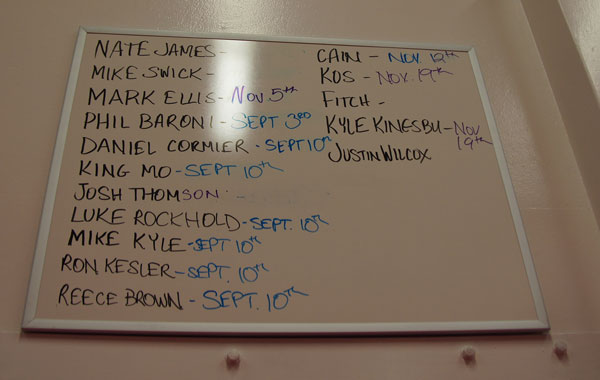 NATE JAMES-
MIKE SWICK -
MARK ELLIS- Nov 5th
PHIL BARONI - SEPT 3RD
DANIEL CORMIER - SEPT 10th
KING MO - SEPT 10th
JOSH THOMSON -
LUKE ROCKHOLD- SEPT. 10th
MIKE KYLE - SEPT 10th
RON KESLER - SEPT. 10th
REECE BROWN - SEPT. 10th
CAIN - NOV. 12th
KOS - NOV. 19th
FITCH -
KYLE KINGSBU - NOV
19th
JUSTIN WILCOX